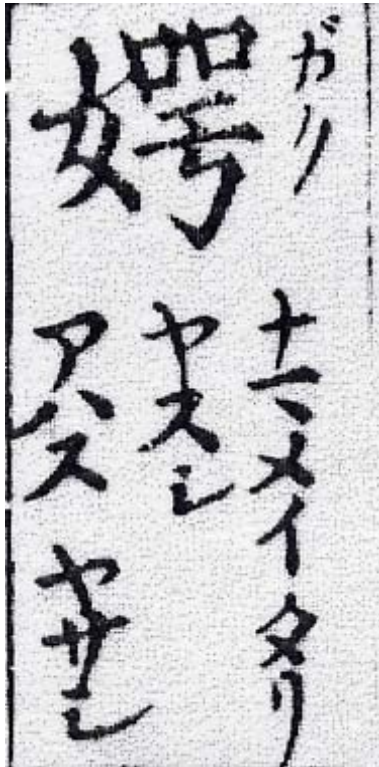 媀 ガク
ナマメイタリ
ヤスシ
アハス ヤサシ